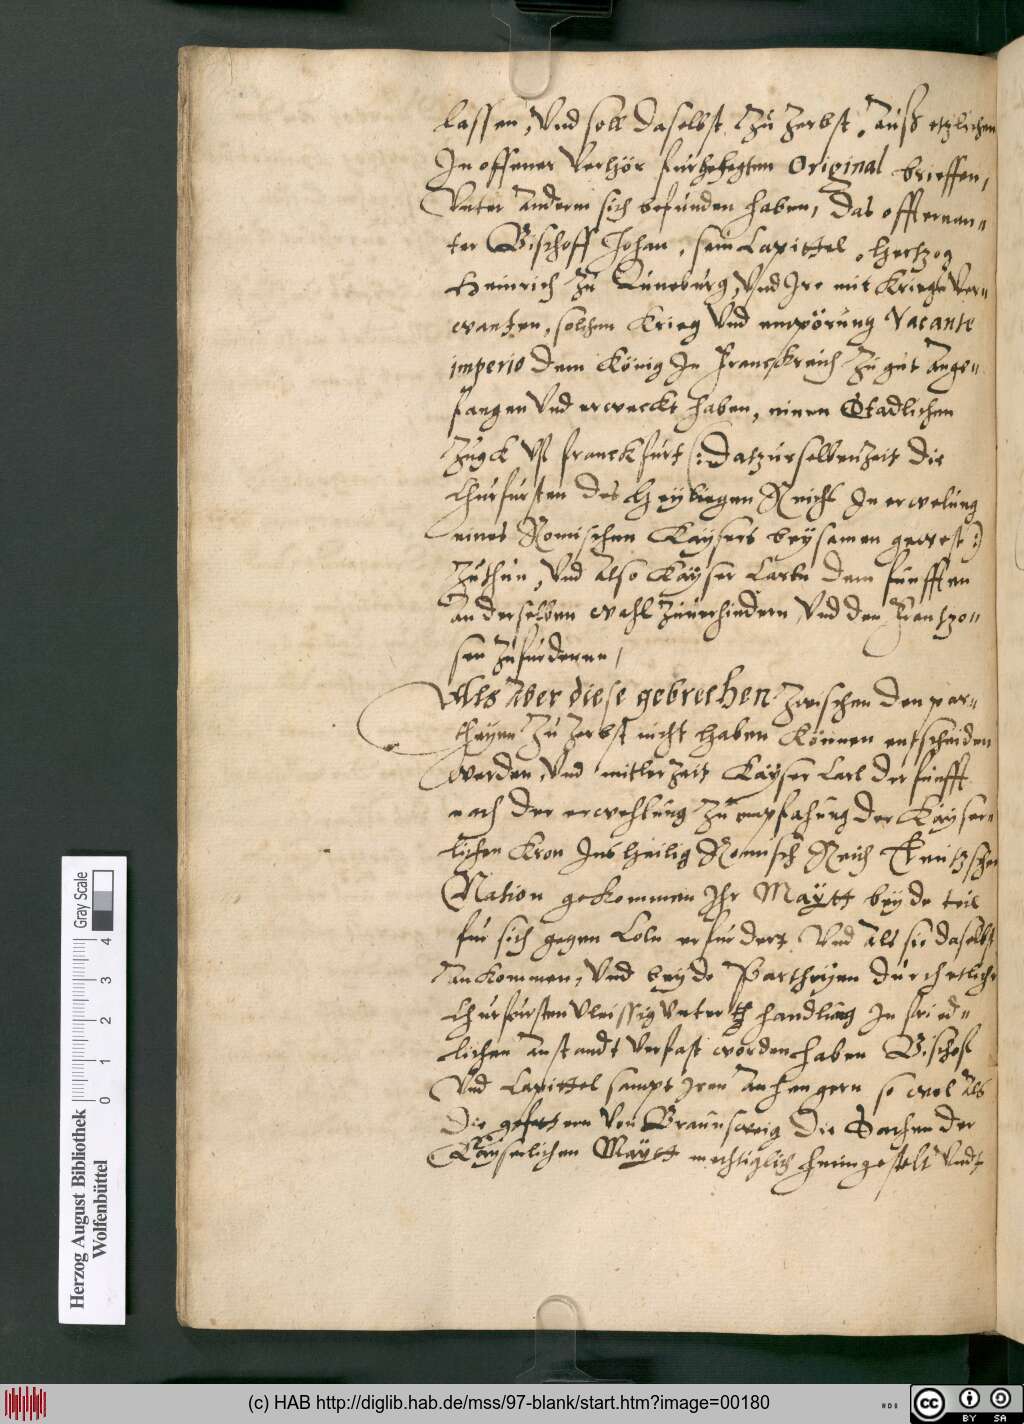 lassen, Vnd soll daselbst zu Zerbst, auß etzlichen
In offener Verhör furgelegten Original brieffen,
Vnter anderm sich befunden haben, das offternan-
ter Bischoff Johan, sein Capittel, Hertzog
Heinrich zu Luneburg, Vnd Ire mit Kriegs Ver-
wanten, solchen Krieg Vnd empörung Vacante
imperio dem König In Franckreich zu gut ange-
fangen Vnd erweckt haben, einen Stadlichen
Zugk Vf franckfurt (: Da zur selben Zeit die
Churfursten des Heyligen Reichs In erwelung
eines Romischen Kaysers beysamen gewest :)
Zuthun, Vnd also Kayser Carln dem funfften
an derselben wahl zuuerhindern Vnd den Frantzo-
sen zufurdernn,
Als aber diese gebrechen zwischen den par-
theyen Zu Zerbst nicht haben können entscheiden
werden, Vnd mitler Zeit Kayser Carl der funfft
nach der erwehlung zu empfahung der Kayser-
lichen Kron Ins heilig Romisch Reich Teutscher
Nation gekommen Ihr Maytt beyde teil
fur sich gegen Coln erfurdert, Vnd als sie daselbst
ankommen, Vnd beyde Partheyen durch etliche
Churfursten Vleissig Vnter handlung In fried-
lichen anstandt Verfast worden haben Bischof
Vnd Capittel sampt Iren anhengern so wol als
die gefettern Von Braunsweig die Sachen der
Kayserlichen Maytt mechtiglich heimgestelt Vndt
Herzog August Bibliothek
Wolfenbüttel
0 1 2 3 4
Gray Scale
(c) HAB http://diglib.hab.de/mss/97-blank/start.htm?image=00180
cc BY SA